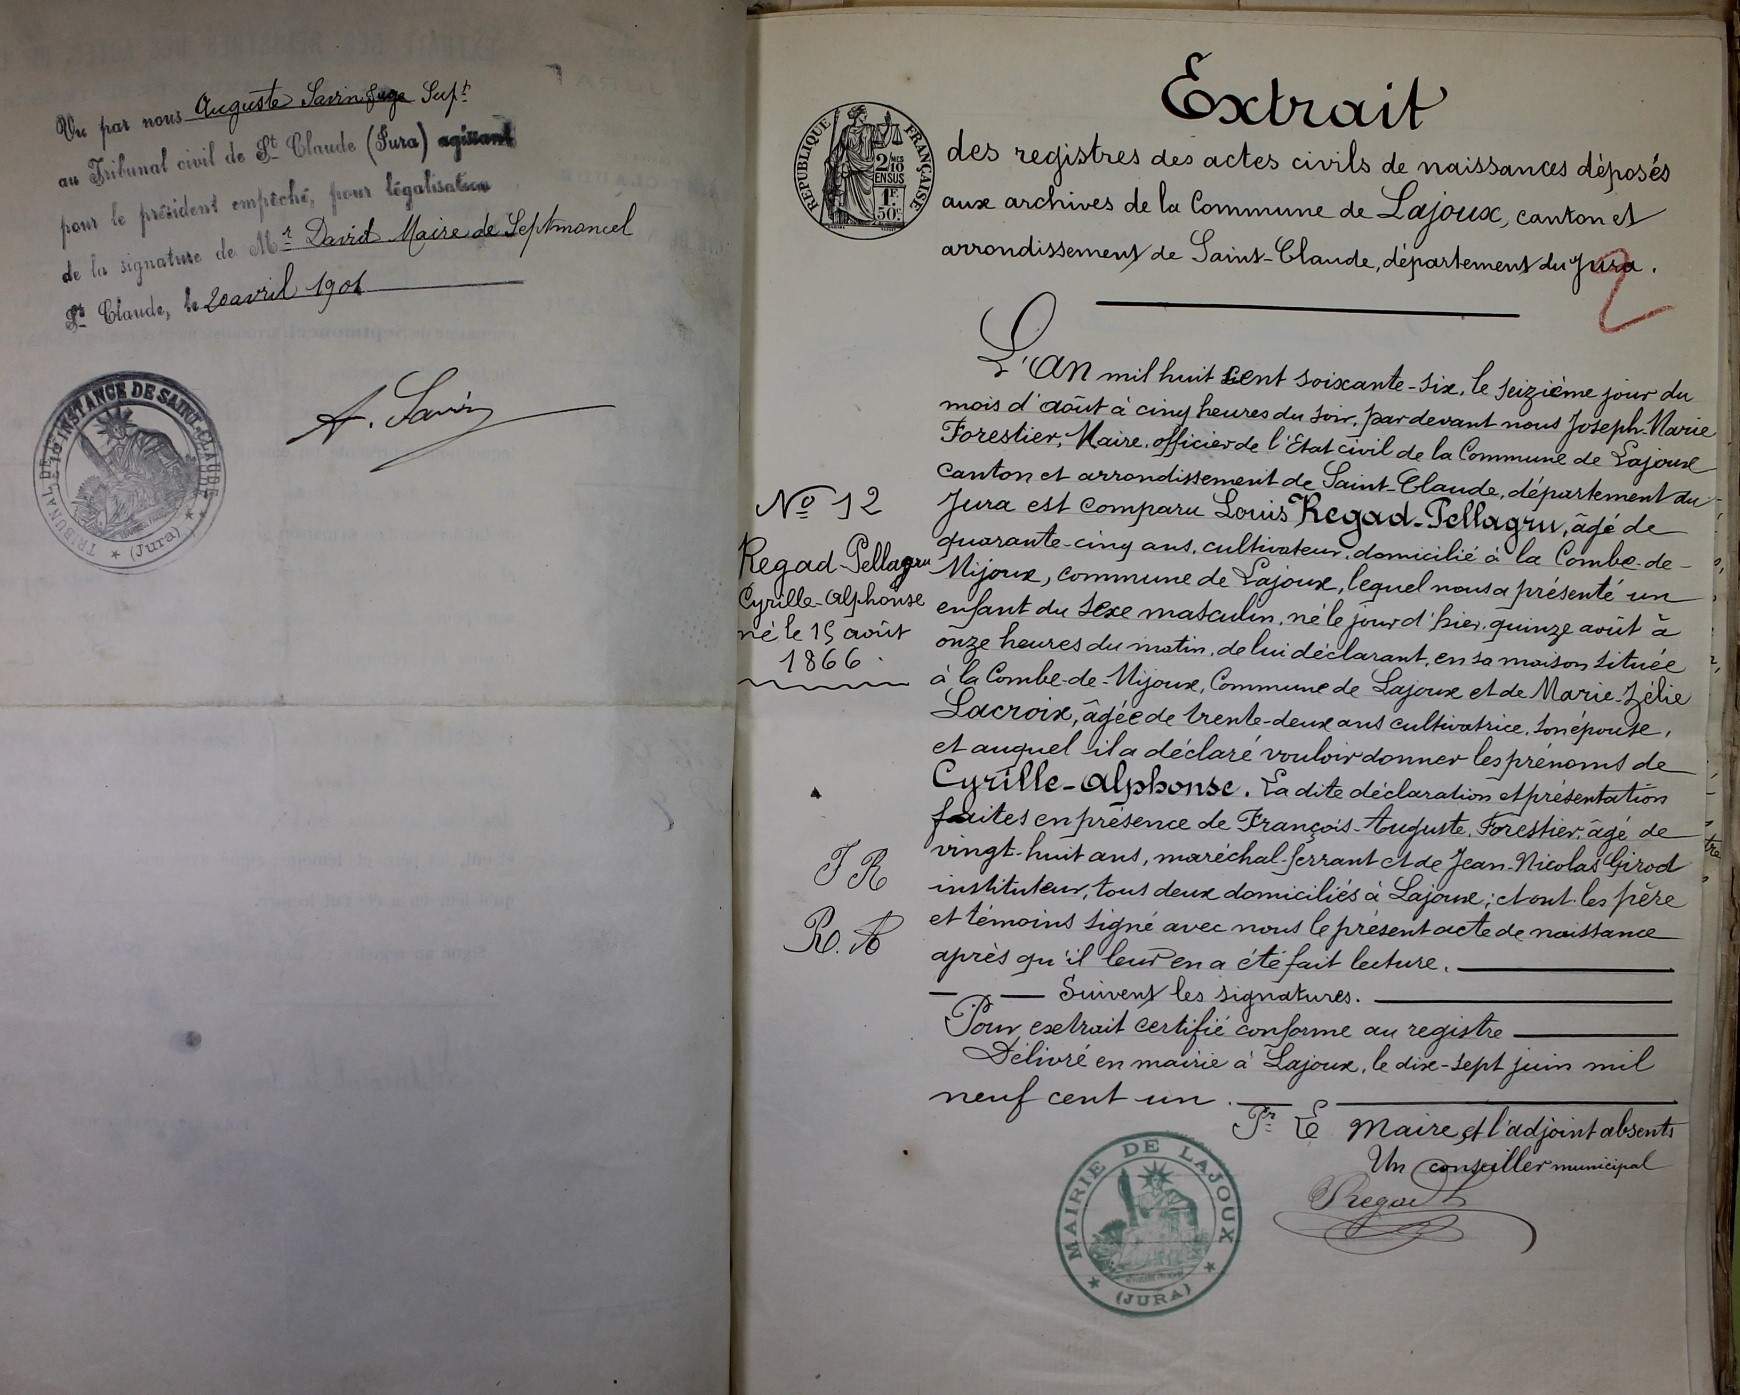 Vu par nous Auguste Savin Juge Supt
au Tribunal civil de St Claude (Jura) agissant
pour le président empêché, pour légalisation
de la signature de Mr David Maire de Septmoncel
St Claude, le 20 avril 1901
TRIBUNAL DE 1re INSTANCE DE SAINT-CLAUDE
(Jura)
A. Savin
Extrait
RÉPUBLIQUE FRANÇAISE
2/10
EN SUS
1F
50c
des registres des actes civils de naissances déposés
aux archives de la Commune de Lajoux, canton et
arrondissement de Saint-Claude, département du Jura.
2
L'An mil huit cent soixante-six, le seizième jour du
mois d'août à cinq heures du soir, par devant nous Joseph-Marie
Forestier, Maire, officier de l'Etat civil de la Commune de Lajoux
canton et arrondissement de Saint-Claude, département du
Jura est comparu Louis Regad-Pellagru, âgé de
quarante-cinq ans, cultivateur, domicilié à la Combe-de-
Mijoux, commune de Lajoux, lequel nous a présenté un
enfant du sexe masculin, né le jour d'hier, quinze août à
onze heures du matin, de lui déclarant, en sa maison située
à la Combe-de-Mijoux, Commune de Lajoux et de Marie-Zélie
Lacroix, âgée de trente-deux ans cultivatrice, son épouse,
et auquel il a déclaré vouloir donner les prénoms de
Cyrille-Alphonse. La dite déclaration et présentation
faites en présence de François-Auguste, Forestier, âgé de
vingt-huit ans, maréchal-ferrant et de Jean-Nicolas Girod
instituteur, tous deux domiciliés à Lajoux; et ont les père
et témoins signé avec nous le présent acte de naissance
après qu'il leur en a été fait lecture.
Suivent les signatures.
Pour extrait certifié conforme au registre
Délivré en mairie à Lajoux, le dix-sept juin mil
neuf cent un.
Pr Le Maire et l'adjoint absents
Un conseiller municipal
Regad
MAIRIE DE LAJOUX
(JURA)
No 12
Regad-Pellagru
Cyrille-Alphonse
né le 15 août
1866
J R
R. A